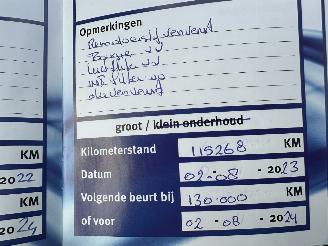 Opmerkingen
Remvloeistof ververst
Bougie's v.v.
Luchtfilter v.v.
int. filter
olie ververst
groot / klein onderhoud
Kilometerstand 115268 KM
Datum 02-08-2023
Volgende beurt bij 130.000 KM
of voor 02-08-2024
KM
2022
KM
2024